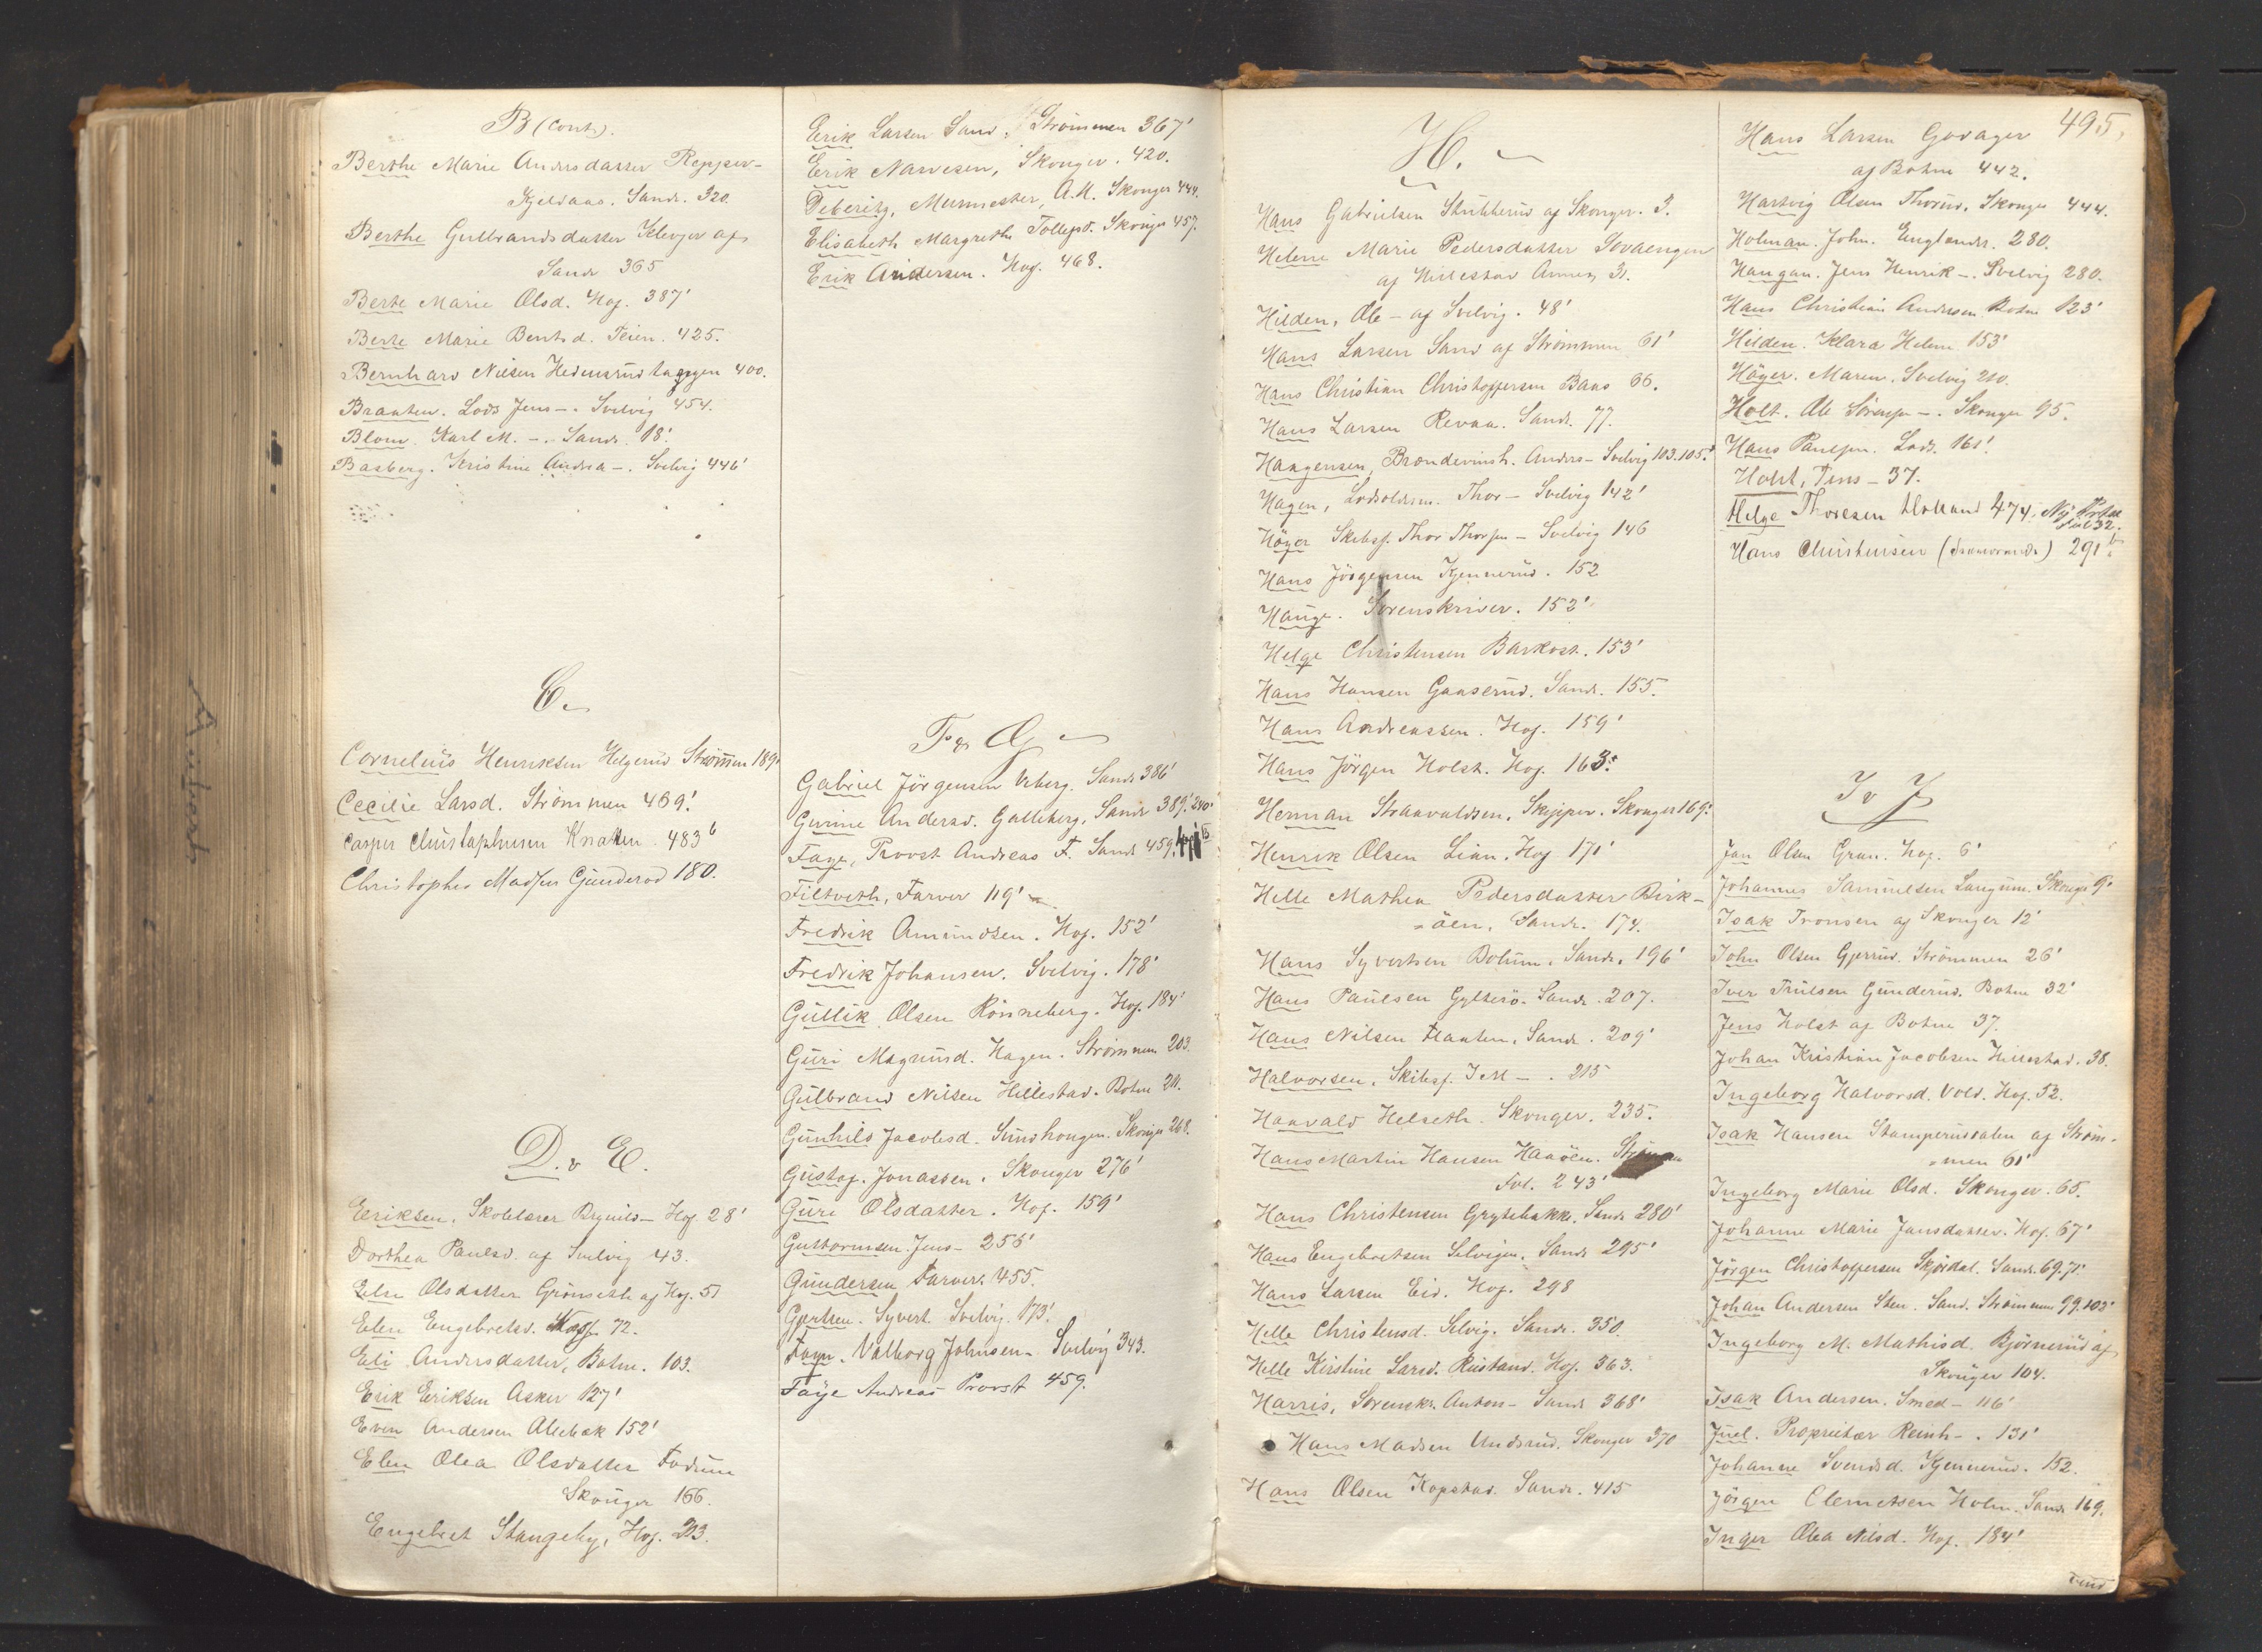 B (cont).
Berthe Marie Andersdatter Repper-
Kjeldaas. Sande. 320.
Berthe Gulbrandsdatter Klever af
Sande 365
Berte Marie Olsd. Hof. 387'
Berte Marie Bentsd. Teien. 425.
Bernhard Nilsen Hedensrud 400.
Braaten. Lods Jens -. Svelvig 454.
Blom. Karl M. -. Sande. 18'.
Basberg. Kristine Andrea -. Svelvig 446'
C.
Cornelius Henriksen Helgerud Strømmen 189.
Cecilie Larsd. Strømmen 469'.
Casper Christophersen Knatten. 483 b
Christopher Madsen Gunderod 180.
D. & E.
Eriksen, Skolelærer Brynild - Hof 28'
Dorthea Paulsd. af Svelvig 43.
Else Olsdatter Grønseth af Hof. 51
Elen Engebretsd. Hof. 72.
Eli Andersdatter, Botne. 103.
Erik Eriksen Asker 127'
Even Andersen Allebæk 152'
Elen Olea Olsdatter Fodum
Skouger 166.
Engebret Stangeby, Hof. 203.
Erik Larsen Sand. Strømmen 367'
Erik Narvesen, Skouger. 420.
Deberitz, Murmester, A.M. Skouger 444.
Elisabeth Margrethe Tollefsd. Skouger 457.
Erik Andersen. Hof. 468.
F & G
Gabriel Jörgensen Viberg. Sande 386'
Gurine Andersd. Galleberg, Sande 389'. 240'
Faye, Provst Andreas F. Sande 459.
Filtveth, Farver 119'
Fredrik Amundsen. Hof. 152'
Fredrik Johansen. Svelvig. 178'
Gullik Olsen Rönneberg. Hof. 184'
Guri Magnusd. Hagen. Strømmen 203.
Gulbrand Nilsen Hillestad. Botne 211.
Gunhild Jacobsd. Sundhaugen. Skouger 268.
Gustaf. Jonassen. Skouger 276'
Guri Olsdatter. Hof. 159'
Guttormsen. Jens - 256'
Gundersen Farver. 455.
Gjertsen. Syvert Svelvig. 173'.
Faye. Valborg Johnsen - Svelvig 343.
Faye Andreas Provst 459.
H.
Hans Gabrielsen Stubberud af Skouger. 3.
Helene Marie Pedersdatter Sovaengen
af Hillestad Annex 31.
Hilden, Ole - af Svelvig. 48'
Hans Larsen Sand af Strømmen 61'
Hans Christian Christoffersen Baas 66.
Hans Larsen Revaa. Sande. 77.
Haagensen, Brændevinsh. Anders - Svelvig 103. 105'.
Hagen, Lodsoldm. Thor - Svelvig 142'
Höyer Skibsf. Thor Thorsen - Svelvig 146
Hans Jörgensen Kjennerud. 152
Hauge. Sorenskriver. 152'
Helge Christensen Barkost. 153'
Hans Hansen Gaaserud. Sande. 155.
Hans Andreassen. Hof. 159'
Hans Jörgen Holst. Hof. 163'.
Herman Straavaldsen, Skipper. Skouger 169'.
Henrik Olsen Lian. Hof 171'
Helle Mathea Pedersdatter Birk-
-åen, Sande. 174.
Hans Syvertsen Bolum. Sande, 196'
Hans Paulsen Gyltesö. Sande. 207.
Hans Nilsen Flaaten. Sande. 209'
Halvorsen. Skibsf. J M -. 215
Haavald Helseth. Skouger. 235.
Hans Martin Hansen Haaöen.
Fol. 243'
Hans Christensen Grytebakke. Sande 280'
Hans Engebretsen Selvigen. Sande 295'
Hans Larsen Eid. Hof. 298
Helle Christensd. Selvig. Sande. 350.
Helle Kirstine Larsd. Rustand. Hof. 363.
Harris, Sorenskr. Anton - Sande 368'
Hans Madsen Undsrud. Skouger 370
Hans Olsen Kopstad. Sande. 415
495.
Hans Larsen Govager
af Botne 442.
Hartvig Olsen Thorud, Skouger 444.
Holman. John. Englænder. 280.
Haugan. Jens Henrik -. Svelvig 280.
Hans Christian Andersen Botne 123'
Hilden. Klara Helene 153'
Höyer. Maren. Svelvig 210.
Holt. Ole Sörensen -. Skouger 95.
Hans Paulsen. Lods. 161'.
Holst, Jens - 37.
Helge Thoresen Holland 474.
Hans Christensen 291 b.
I & J
Jan Olsen Gran. Hof. 6'
Johannes Samuelsen Langum. Skouger 9'
Isak Tronsen af Skouger 12'
John Olsen Gjerrud. Strömmen 26'
Iver Trulsen Gunderud. Botne 32'
Jens Holst af Botne 37.
Johan Kristian Jacobsen Hillestad. 38.
Ingeborg Halvorsd. Vold. Hof. 52.
Isak Hansen Stamperudsalen af Strøm-
-men 61'
Ingeborg Marie Olsd. Skouger. 65.
Johanne Marie Jansdatter. Hof. 67'
Jörgen Christoffersen Skjördal. Sande. 69. 71'.
Johan Andersen Sten. Sand. Strømmen 99. 102'
Ingeborg M. Mathisd. Bjørnerud af
Skouger 104.
Isak Andersen. Smed - 116'
Juel. Proprietær Reinh -. 131'
Johanne Svendsd. Kjennerud. 152.
Jörgen Clemetsen Holm. Sande 169.
Inger Olea Nilsd. Hof. 184'